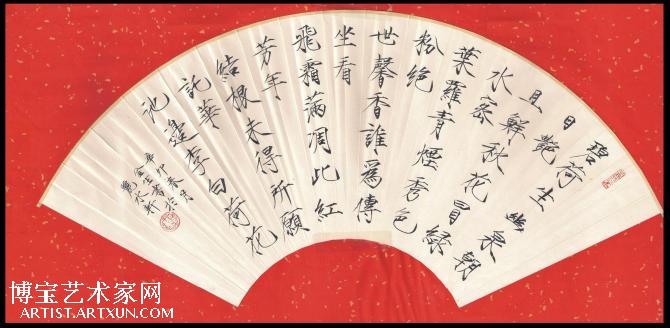 碧荷生幽泉朝
日艷
且鮮秋花冒綠
水密
葉羅青煙秀色
粉絕
世馨香誰為傳
坐看
飛霜滿凋此紅
芳年
結根未得所願
託華
池邊李白荷花
辛卯春月
金生書於
軒
博宝艺术家网
ARTIST.ARTXUN.COM